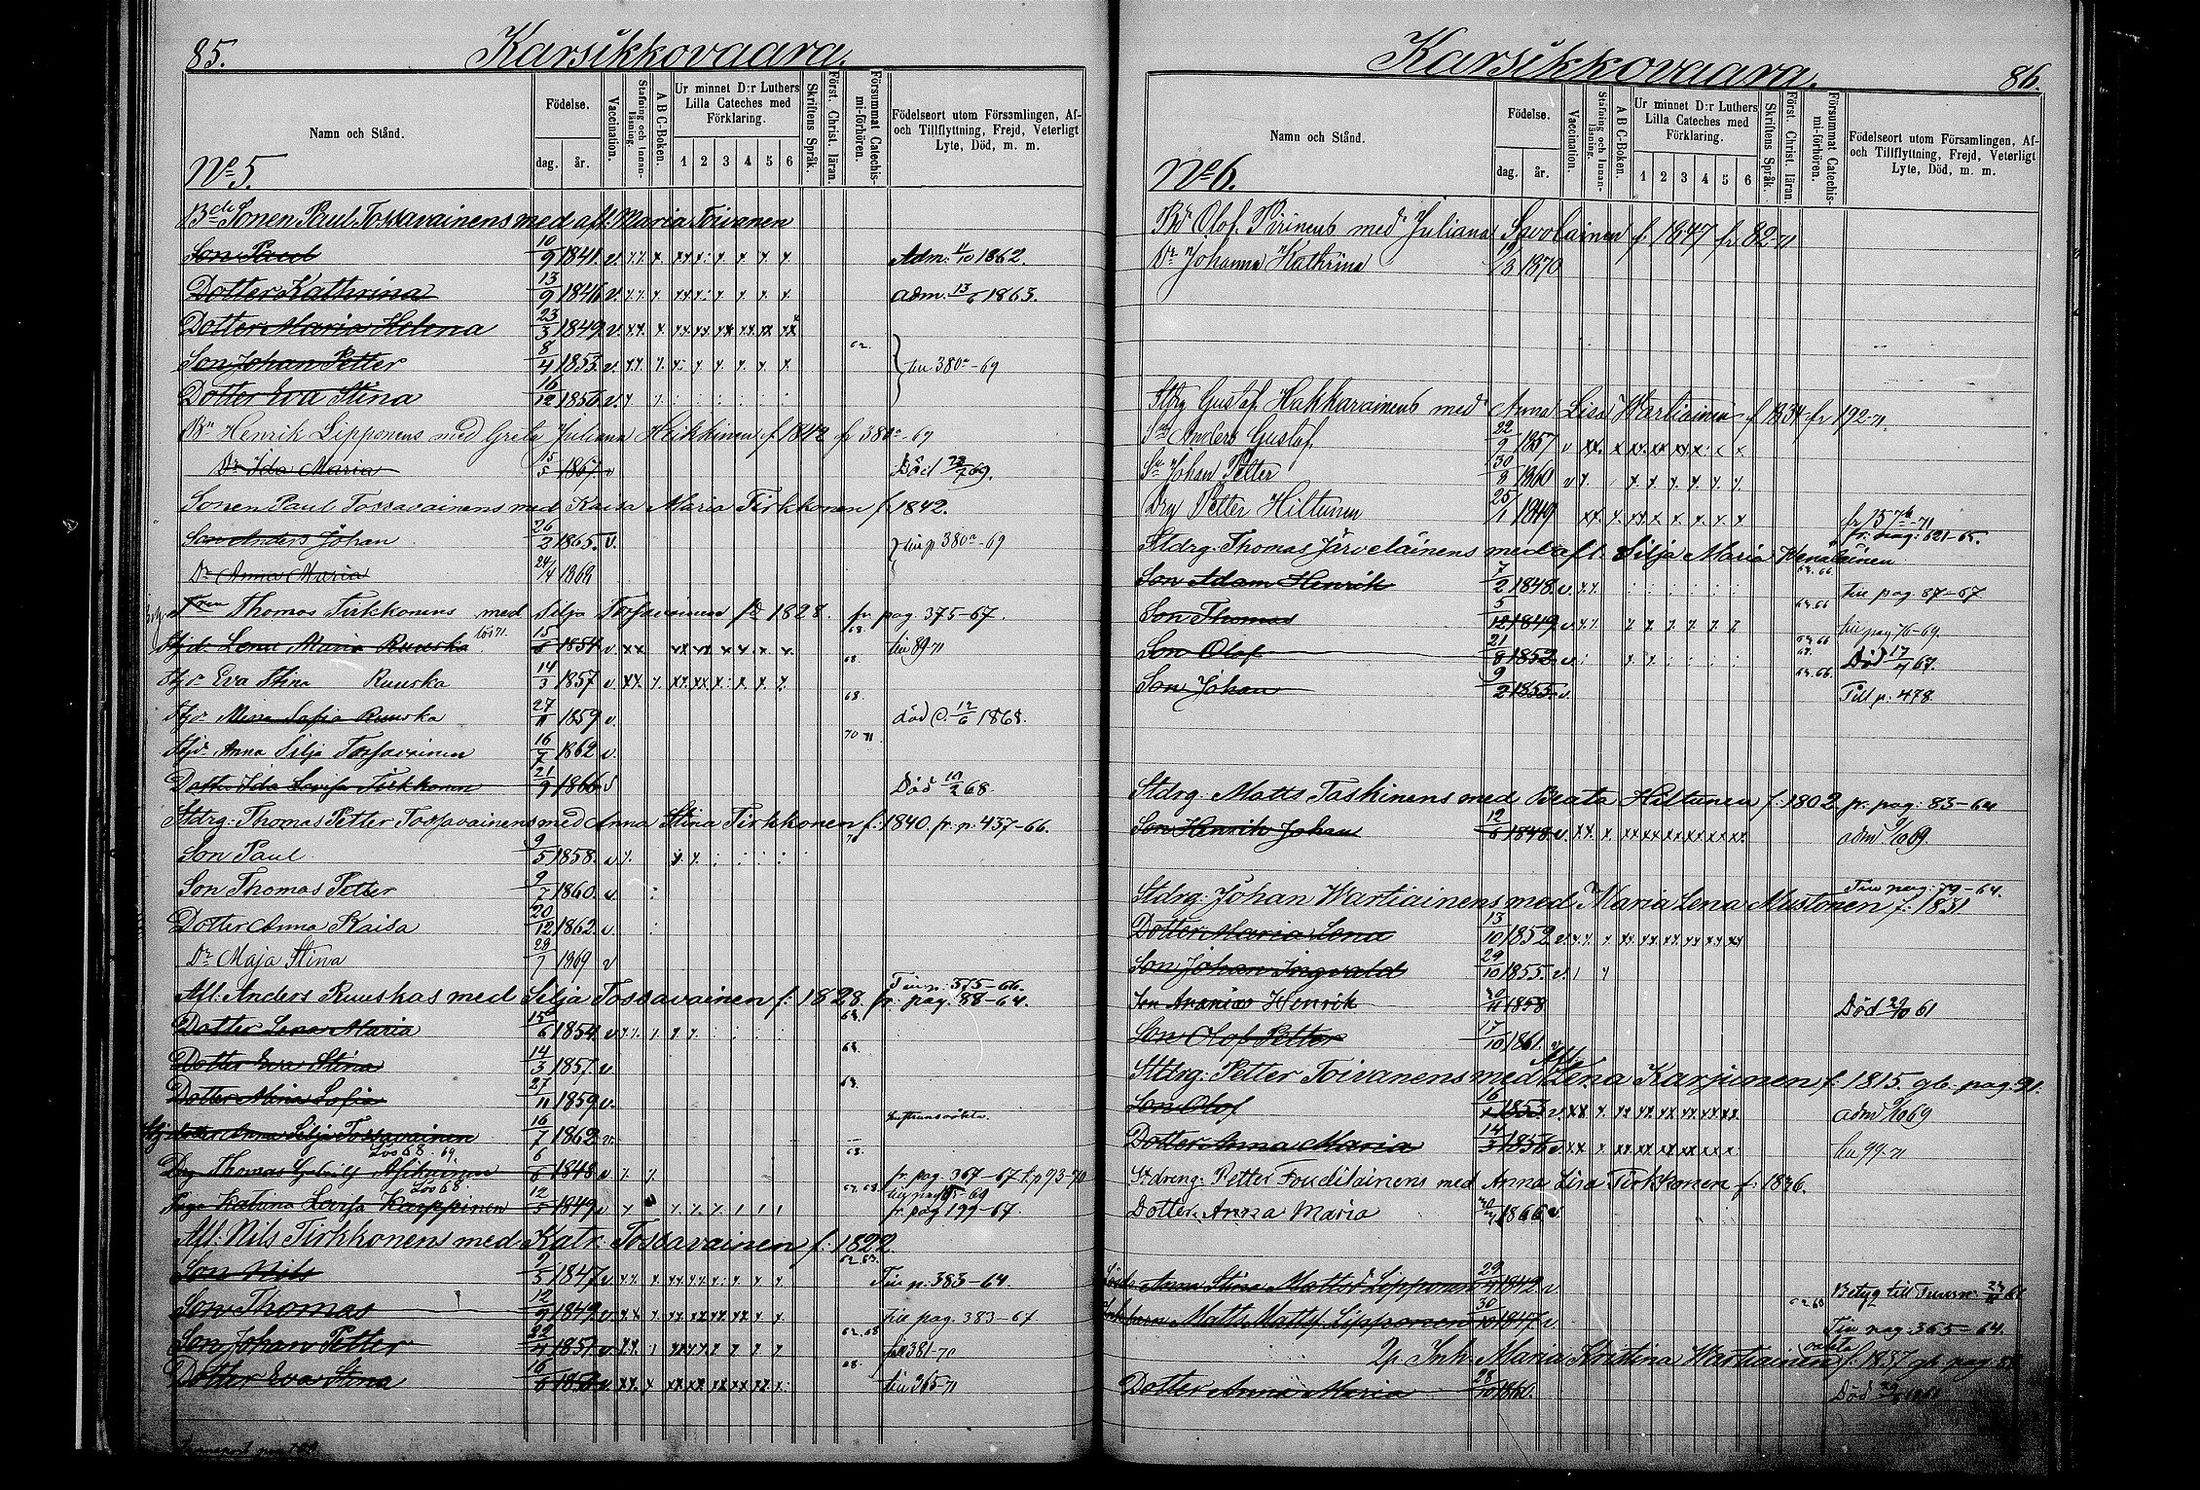 85.
Karsikkovaara.
Namn och Stånd.
Födelse.
dag. år.
Vaccination.
Stafning och Innan-läsning.
A B C-Boken.
Ur minnet D:r Luthers Lilla Cateches med Förklaring.
1 2 3 4 5 6
Skriftens Språk.
Först. Christ. läran.
Försummat Catechis-mi-förhören.
Födelseort utom Församlingen, Af- och Tillflyttning, Frejd, Veterligt Lyte, Död, m. m.
No 5.
Sonen Paul Tossavainens med afl. Maria Toivanen
10/9 1841. v. Adm. 1862.
Dotter Kathrina 13/9 1846 v. adm. 13/6 1863.
Dotter Maria Helena 23/3 1849 v.
Son Johan Petter 8/4 1853 v. 380a-69
Dotter Eva Stina 16/12 1856 v.
Henrik Lipponens med Greta Juliana Heikkinen f. 1842 fr 380a-69
Dr Ida Maria 15/5 1867 v Död 69.
Sonen Paul Tossavainens med Kaisa Maria Tirkkonen f. 1842.
Son Anders Johan 26/2 1865. v. p 380a-69
Dr Anna Maria 24/4 1869
Thomas Tirkkonens med Silja Tossavainen 1828. fr. pag. 375-67.
Lena Maria Ruuska 15/6 1854 v 89-71
Eva Stina Ruuska 14/3 1857 v
Mina Sofia Ruuska 27/11 1859 v. död 12/6 1868.
Anna Silja Tossavainen 16/7 1862 v
Dotter Ida Lovisa Tirkkonen 21/9 1866 Död 68.
Stdrg: Thomas Petter Tossavainens med Anna Stina Tirkkonen f. 1840. fr. p. 437-66.
Son Paul 9/5 1858. v
Son Thomas Petter 9/7 1860. v
Dotter Anna Kaisa 20/12 1862. v
Dr Maja Stina 28/7 1869 v
Afl: Anders Ruuskas med Silja Tossavainen f: 1828. fr. pag. 88-64.
Dotter Lena Maria 15/6 1854. v
Dotter Eva Stina 14/3 1857. v.
Dotter Mina Sofia 27/11 1859 v.
Anna Silja Tossavainen 16/7 1862 v.
Thomas 1848 v fr. pag. 367-67
Katrina Lovisa Karppinen 12/5 1849 v fr. pag 199-67
Afl: Nils Tirkkonens med Katr. Tossavainen f: 1822.
Son Nils 9/5 1847 v p: 383-64.
Son Thomas 12/9 1849 v. pag. 383-67
Son Johan Petter 22/4 1851 v 381-70
Dotter Eva Stina 16/6 v 365-71
Karsikkovaara.
86.
Namn och Stånd.
Födelse.
dag. år.
Vaccination.
Stafning och Innan-läsning.
A B C-Boken.
Ur minnet D:r Luthers Lilla Cateches med Förklaring.
1 2 3 4 5 6
Skriftens Språk.
Först. Christ. läran.
Försummat Catechis-mi-förhören.
Födelseort utom Församlingen, Af- och Tillflyttning, Frejd, Veterligt Lyte, Död, m. m.
No 6.
Olof Piirinens med Juliana Savolainen f. 1847 fr 82-71
Dr Johanna Kathrina 1870
Stdrg Gustaf Hakkarainens med Anna Lisa Wartiainen f. 1834 fr 192-71.
Anders Gustaf 22/9 1857 v
Johan Petter 30/3 1860 v
Drg Petter Hiltunen 25/1 1849
fr. pag: 621-65.
Stdrg: Thomas Järveläinens med afl. Silja Maria
Son Adam Henrik 7/2 1848. v. pag. 87-67
Son Thomas 5/12 1849 v. pag 76-69.
Son Olof 21/8 1852 v. Död 67.
Son Johan 9/2 1855 v. Till p. 478
Stdrg: Matts Taskinens med Beata Hiltunen f: 1802 fr. pag: 83-64
Son Henrik Johan 12/6 1848 v. adm 69.
pag: 79-64.
Stdrg: Johan Wartiainens med Maria Lena Mustonen f: 1831
Dotter Maria Lena 13/10 1852 v.
Son Johan Ingevald 29/10 1855. v.
Son Ananias Henrik 1858 Död 61
Son Olof Petter 17/10 1861.
Stdrg: Petter Toivanens med Lena Karjunen f: 1815. gb. pag: 91.
Son Olof 16 1853 v. adm 69
Dotter Anna Maria 14/3 1856 v. 99-71
Stdreng: Petter med Anna Lisa Tirkkonen f: 1836.
Dotter Anna Maria 1866 v.
Anna Stina Lipponen 29 1842 v Betyg till
Matts Lipponen 30/10 1847 v
pag: 365-64.
Inh. Maria Kristina Wartiainen f: 1837 gb. pag:
Dotter Anna Maria 28/10 Död